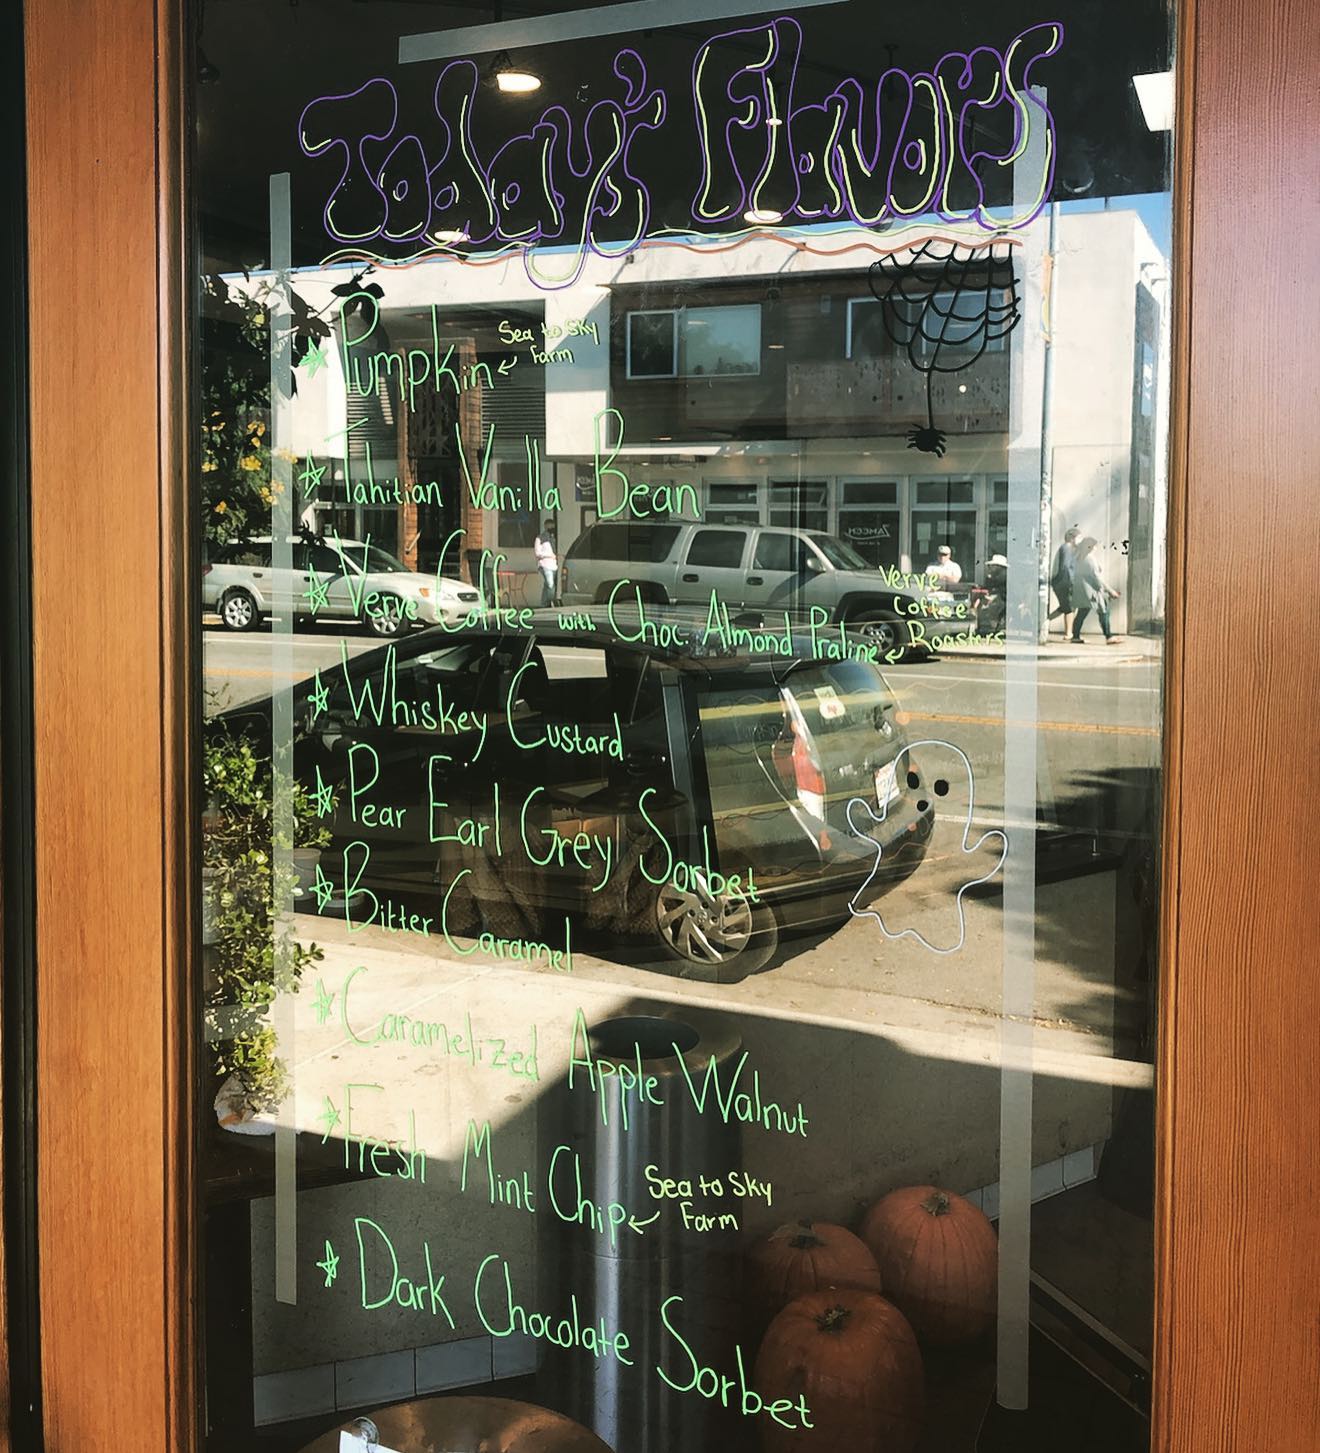 Today's Flavors
Pumpkin
Sea to Sky
Farm
Tahitian Vanilla Bean
Verve Coffee with Choc. Almond Praline
Verve
Coffee
Roasters
Whiskey Custard
Pear Earl Grey Sorbet
Bitter Caramel
Caramelized Apple Walnut
Fresh Mint Chip
Sea to Sky
Farm
Dark Chocolate Sorbet